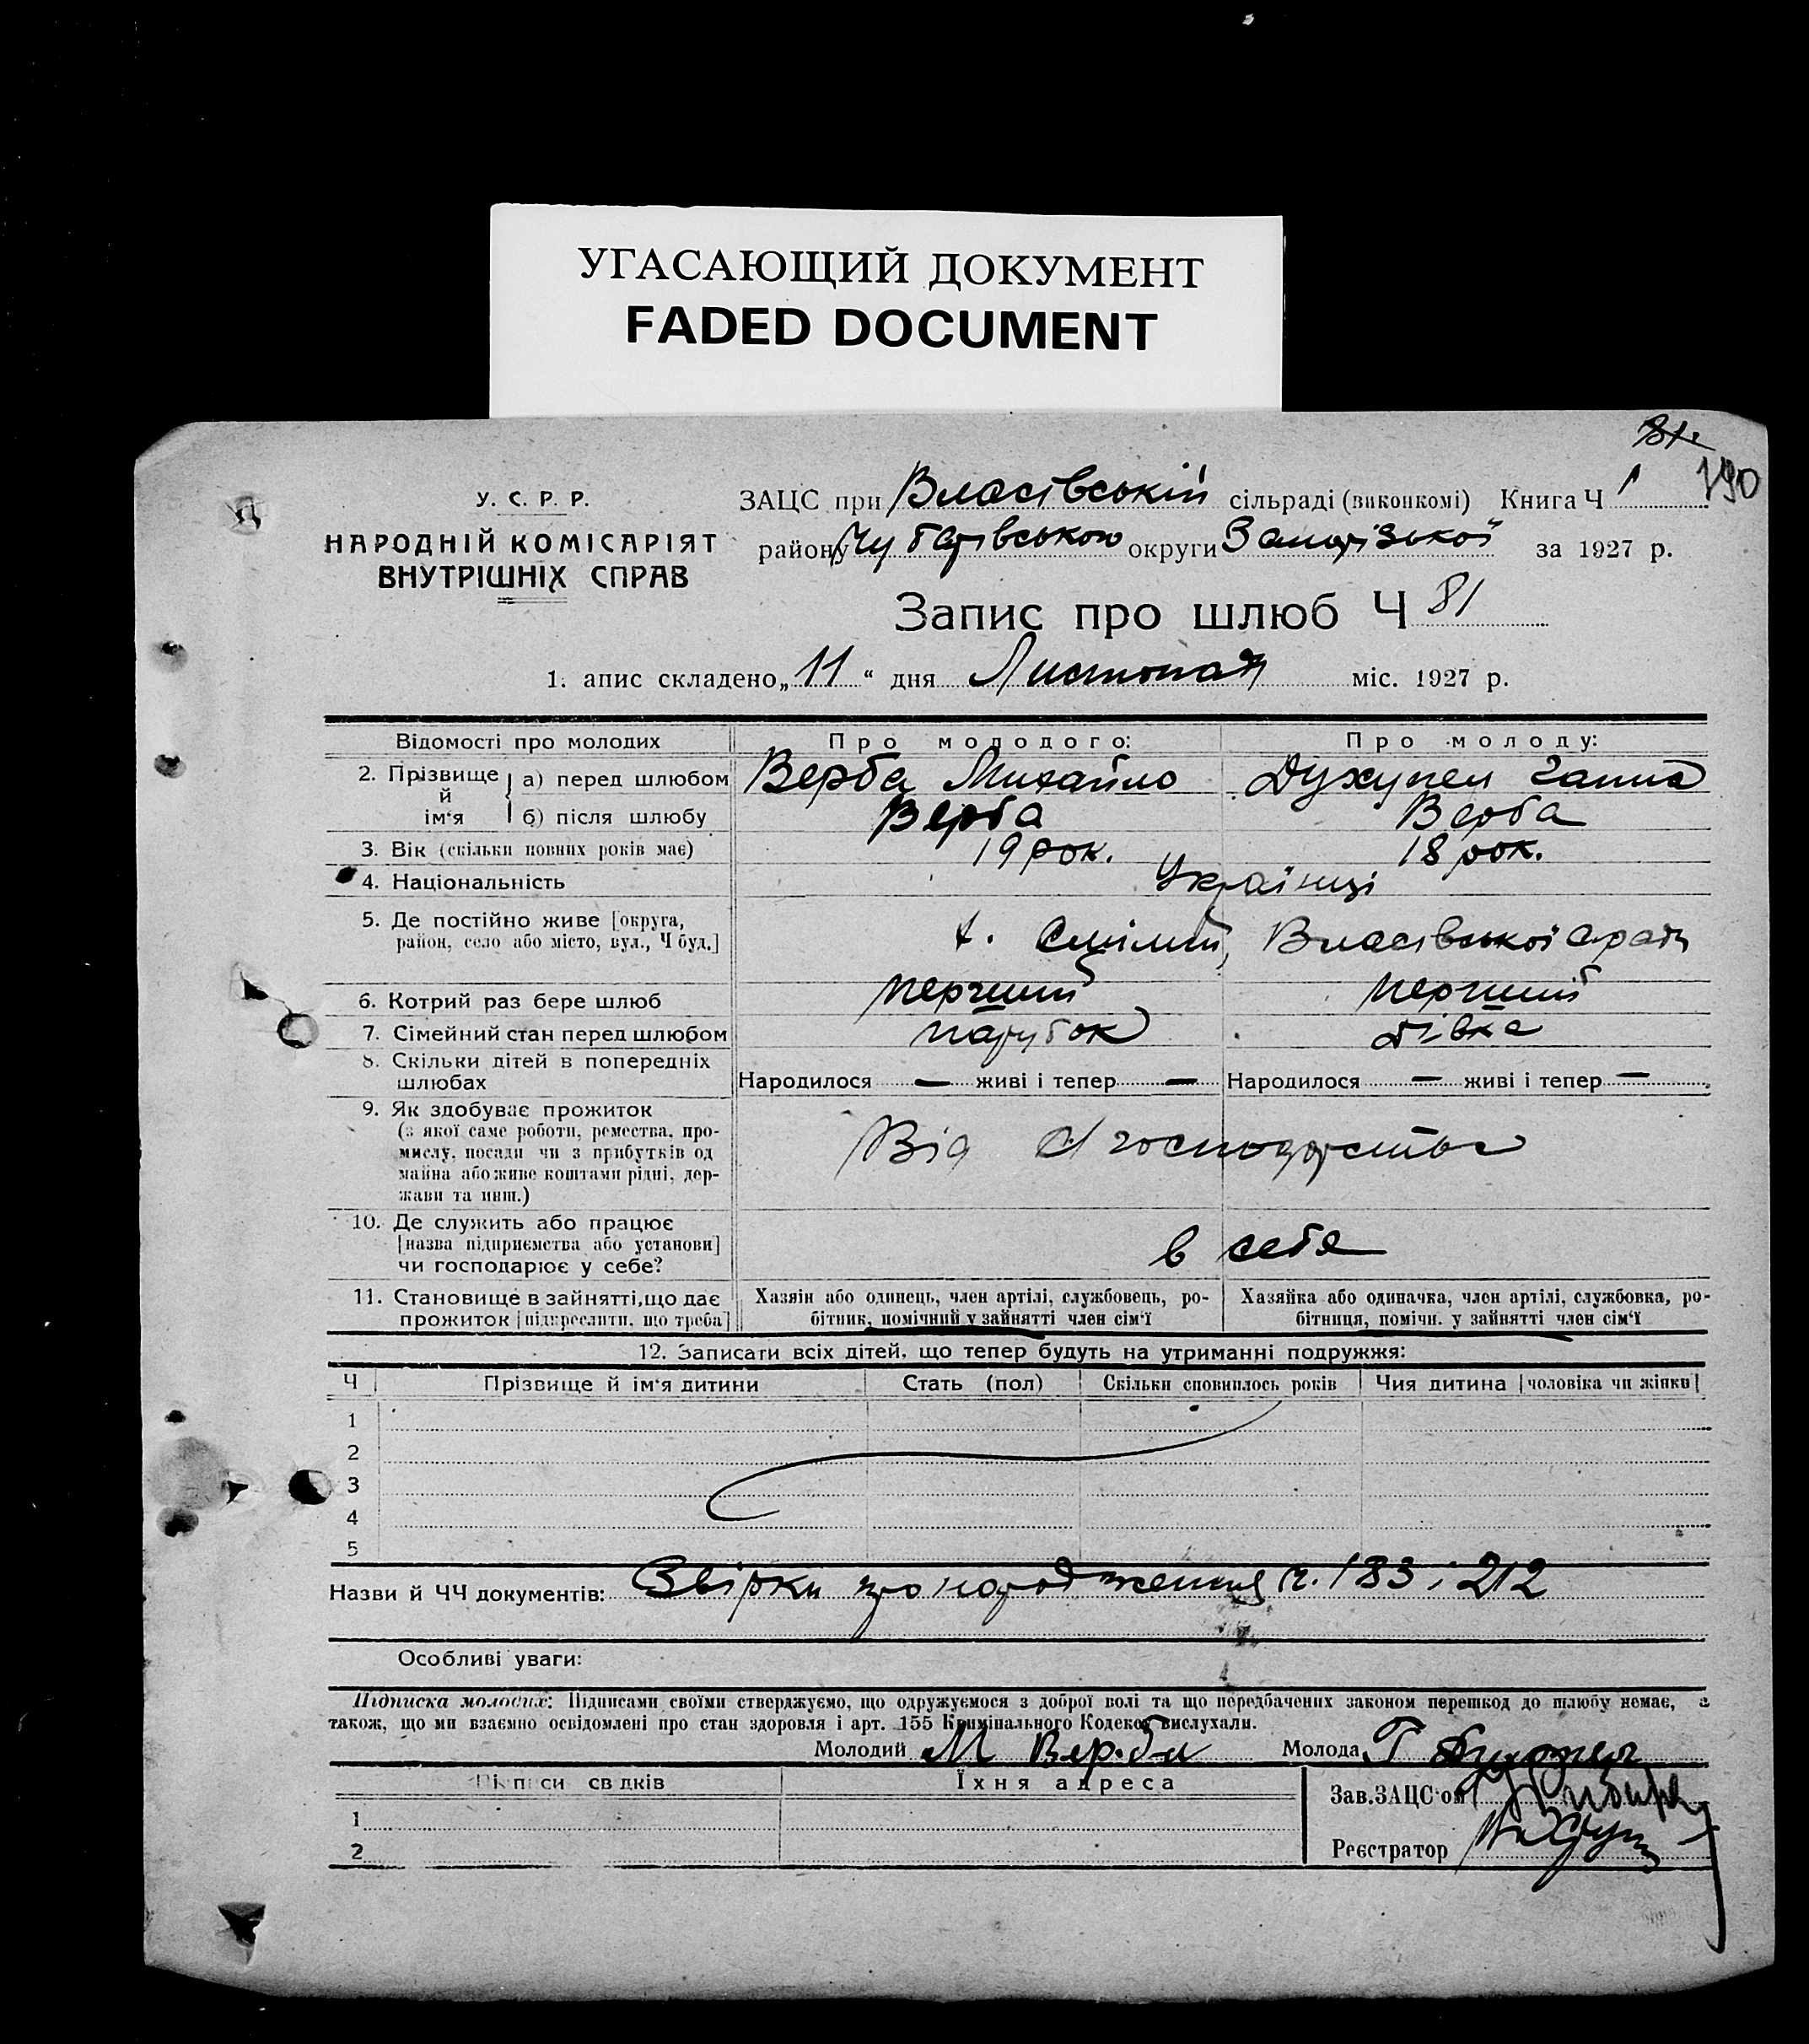 УГАСАЮЩИЙ ДОКУМЕНТ
FADED DOCUMENT
81.
190
У. С. Р. Р.
НАРОДНІЙ КОМІСАРІЯТ
ВНУТРІШНІХ СПРАВ
ЗАЦС при Власівській сільраді (виконкомі) Книга Ч 1
району Чубарівського округи Запорізької за 1927 р.
Запис про шлюб Ч 81
1. апис складено „11“ дня Листопад міс. 1927 р.
Відомості про молодих Про молодого: Про молоду:
2. Прізвище й ім‘я а) перед шлюбом Верба Михайло Ганна
б) після шлюбу Верба Верба
3. Вік (скільки повних років має) 19 рок. 18 рок.
4. Національність Українці
5. Де постійно живе [округа,
район, село або місто, вул., Ч буд.] х. Власівської с/ради
6. Котрий раз бере шлюб перший перший
7. Сімейний стан перед шлюбом парубок дівка
8. Скільки дітей в попередніх
шлюбах Народилося — живі і тепер — Народилося — живі і тепер —
9. Як здобуває прожиток
(з якої саме роботи, ремества, про-
мислу, посади чи з прибутків од
майна або живе коштами рідні, дер-
жави та инш.) Від с/господарства
10. Де служить або працює
[назва підприємства або установи]
чи господарює у себе? в себе
11. Становище в зайнятті, що дає
прожиток [підкреслити, що треба]
Хазяїн або одинець, член артілі, службовець, ро-
бітник, помічний у зайнятті член сім‘ї
Хазяйка або одиначка, член артілі, службовка, ро-
бітниця, помічн. у зайнятті член сім‘ї
12. Записати всіх дітей, що тепер будуть на утриманні подружжя:
Ч Прізвище й ім‘я дитини Стать (пол) Скільки сповнилось років Чия дитина [чоловіка чи жінки]
1
2
3
4
5
Назви й ЧЧ документів: Звірки про народження ч. 183 і 212
Особливі уваги:
Підписка молодих: Підписами своїми стверджуємо, що одружуємося з доброї волі та що передбачених законом перешкод до шлюбу немає, а
також, що ми взаємно освідомлені про стан здоровля і арт. 155 Кримінального Кодексу вислухали.
Молодий М Верба Молода Г
Підписи свідків Їхня адреса Зав. ЗАЦС‘ом
1
2 Реєстратор